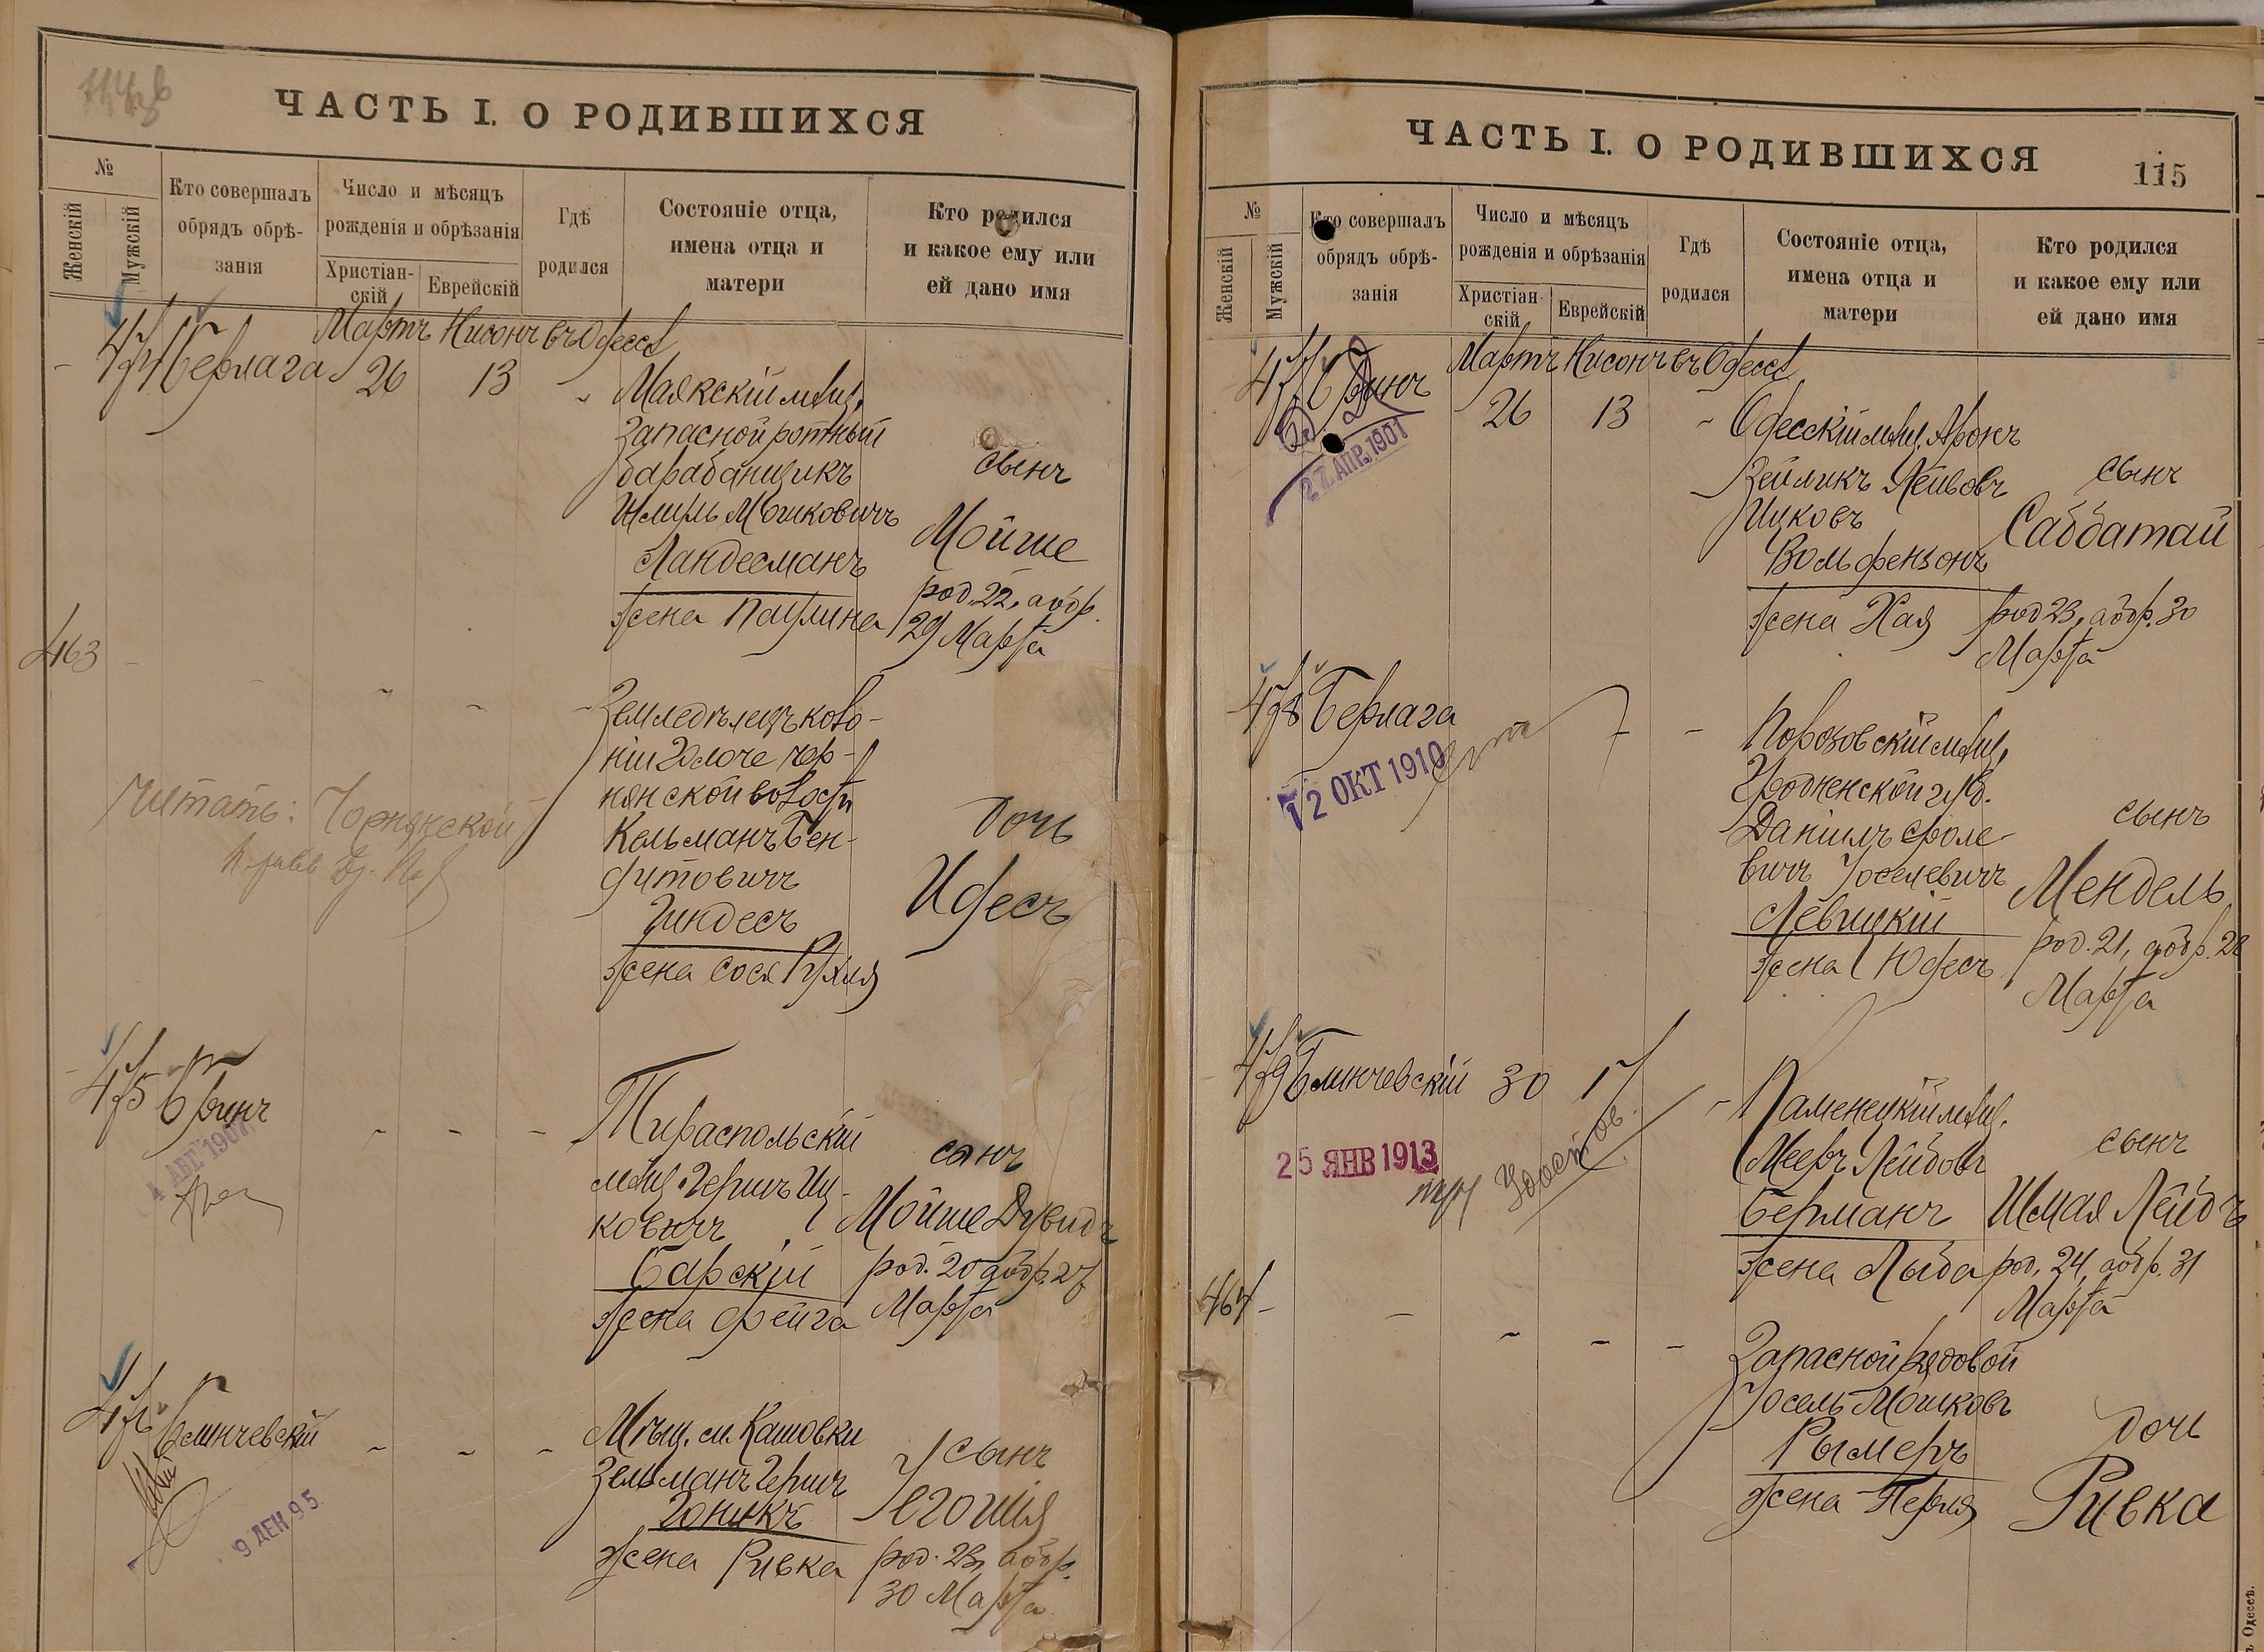 ЧАСТЬ I. О РОДИВШИХСЯ
№
Женскій
Мужскій
Кто совершалъ
обрядъ обрѣ-
занія
Число и мѣсяцъ
рожденія и обрѣзанія
Христіан-
скій
Еврейскій
Гдѣ
родился
Состояніе отца,
имена отца и
матери
Кто родился
и какое ему или
ей дано имя
Мартъ Нисонъ въ Одессѣ
474 Берлага 26 13 -
Маякскій мѣщ.
Запасной ротный
барабанщикъ
Шмиль Мошковичъ
Ландесманъ
жена Паулина
сынъ
Мойше
род. 22, абдр.
29 Марта
463
Земледѣлецъ коло-
ніи
нянской волости
Кельманъ Бен-
Гиндесъ
жена Сося Рухля
дочь
Идесъ
Читать:
475 Бринъ
4 АВГ 1907
Тираспольскій
мѣщ. Гершъ Иц-
ковичъ
Барскій
жена Фейга
сынъ
Мойше Дувидъ
род. 20 абдр. 27
Марта
476 Блинчевскій
9 ДЕК 95
Мѣщ. м. Кашовки
Зельманъ Гершъ
Гоникъ
жена Ривка
сынъ
Іегошія
род. 23, абдр.
30 Марта
ЧАСТЬ I. О РОДИВШИХСЯ
115
№
Женскій
Мужскій
Кто совершалъ
обрядъ обрѣ-
занія
Число и мѣсяцъ
рожденія и обрѣзанія
Христіан-
скій
Еврейскій
Гдѣ
родился
Состояніе отца,
имена отца и
матери
Кто родился
и какое ему или
ей дано имя
Мартъ Нисонъ въ Одессѣ
477 Бринъ 26 13 -
27 АПР. 1901
Одесскій мѣщ. Аронъ
Зейликъ Лейбовъ
Ицковъ
Вольфензонъ
жена Хая
сынъ
Саббатай
род 23, абдр. 30
Марта
478 Берлага
12 ОКТ 1910
Порозовскій мѣщ.
Гродненской губ.
Даніилъ Сроле-
вичъ Іоселевичъ
Левицкій
жена Юдесъ
сынъ
Мендель
род. 21, абдр. 28
Марта
479 Блинчевскій 30 17 -
25 ЯНВ 1913
Каменецкій мѣщ.
Мееръ Лейбовъ
Берманъ
жена Лыба
сынъ
Шмая Лейбъ
род. 24, абдр. 31
Марта
464
Запасной рядовой
Іосель Мошковъ
Рымеръ
жена Перля
дочь
Ривка